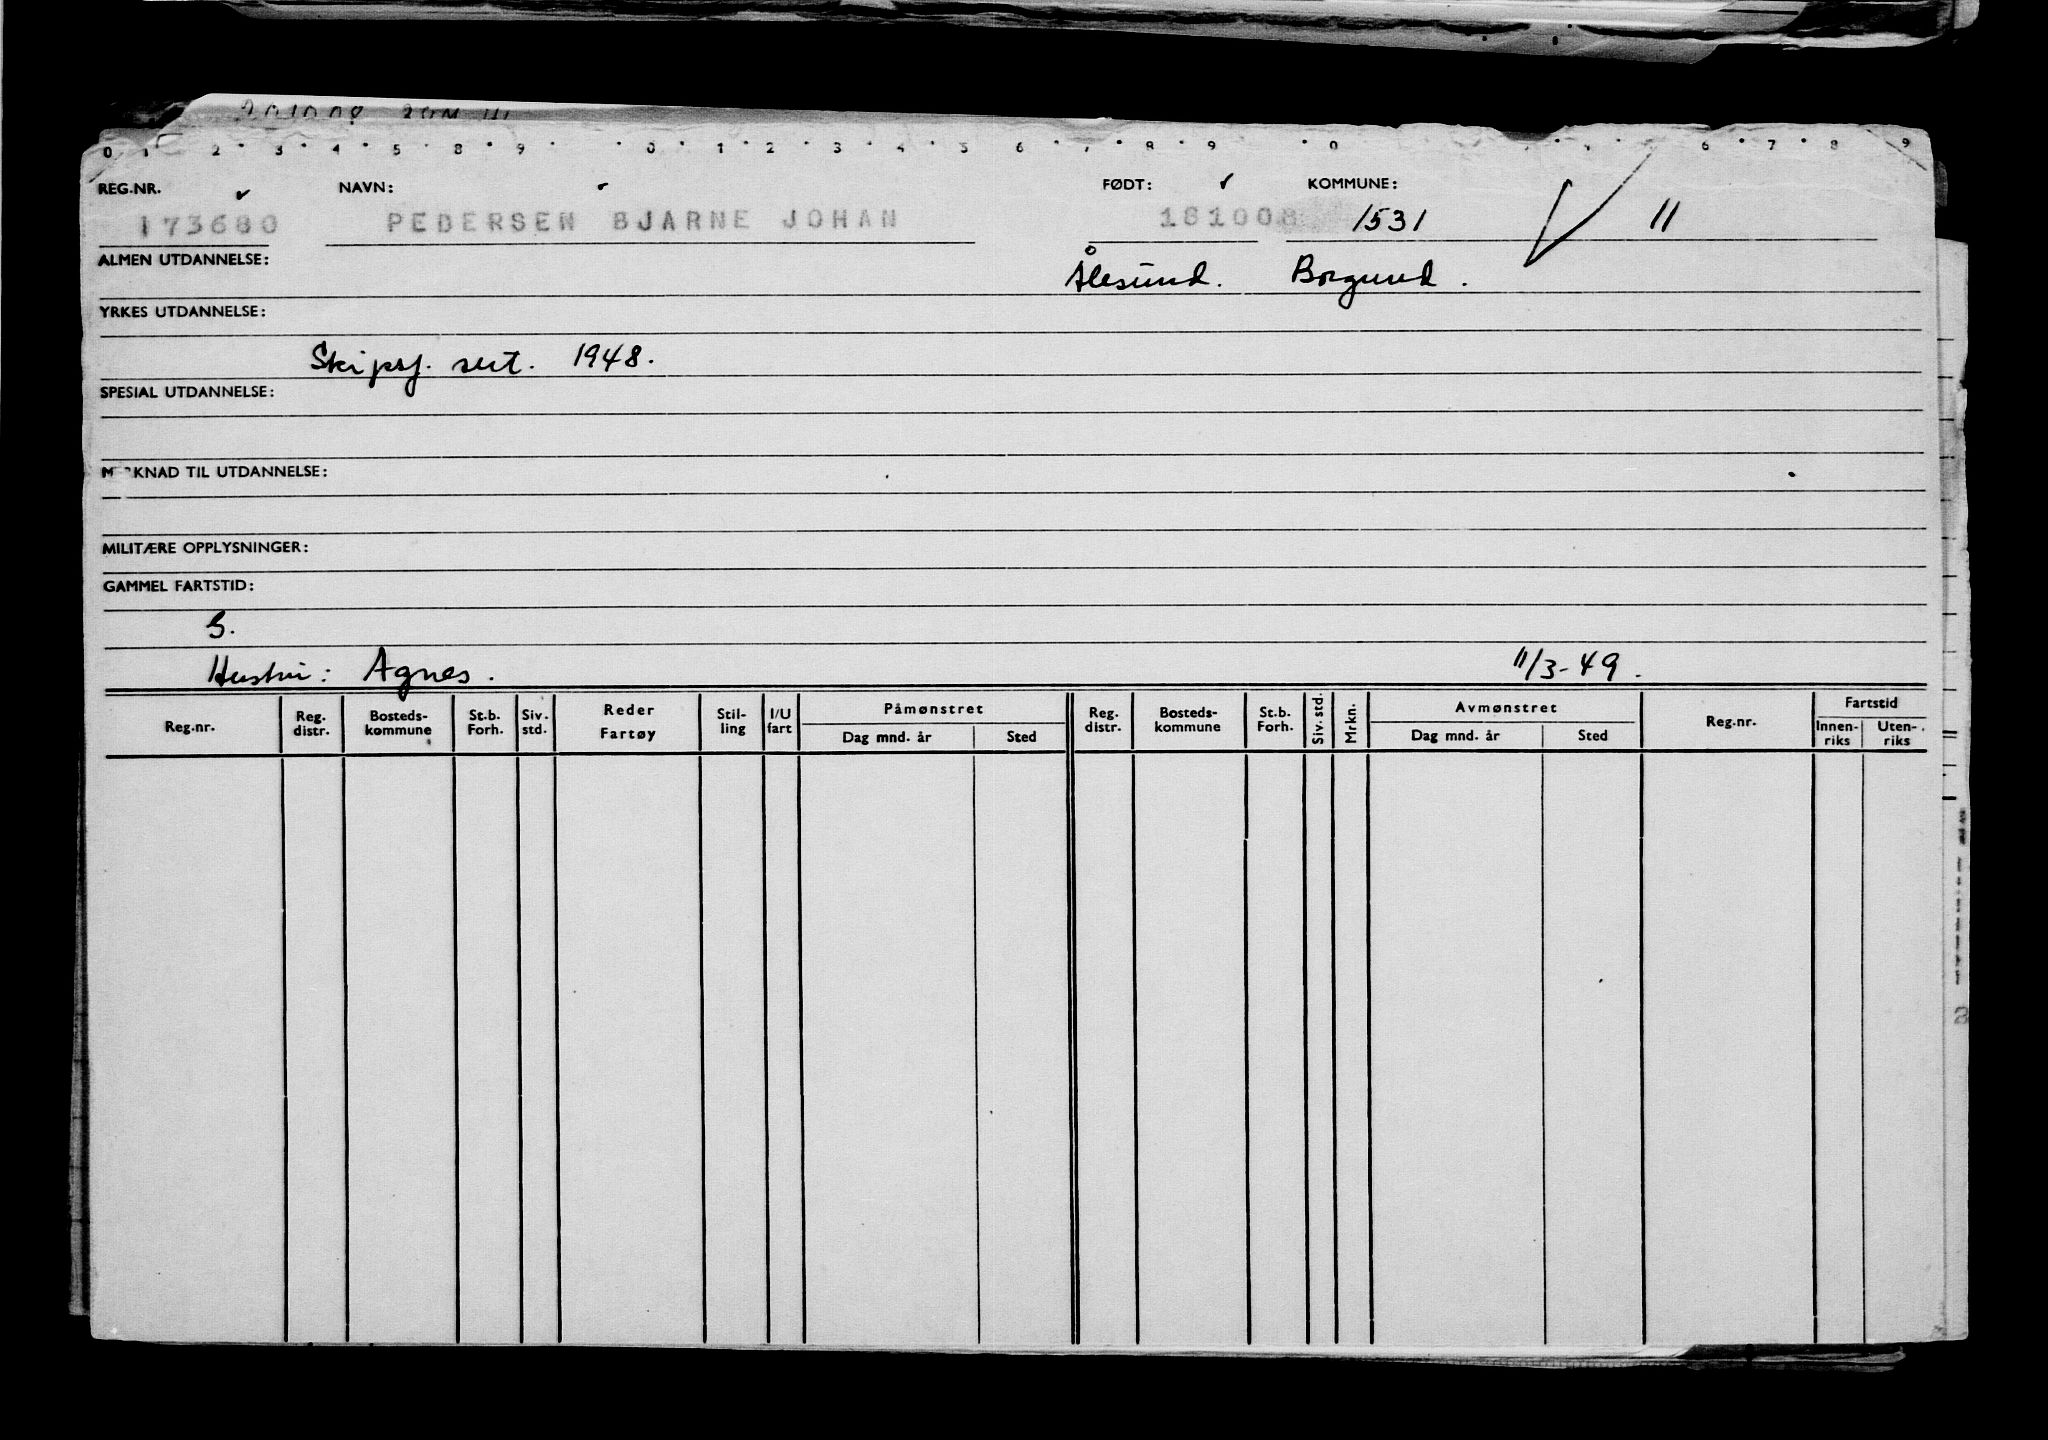 0 1 2 3 4 5 8 9 0 1 2 3 4 5 6 7 8 9 0 6 7 8 9
REG.NR. NAVN: FØDT: KOMMUNE:
173680 PEDERSEN BJARNE JOHAN 181008 1531 11
ALMEN UTDANNELSE: Ålesund. Borgund.
YRKES UTDANNELSE:
Skipsf. sert. 1948.
SPESIAL UTDANNELSE:
M KNAD TIL UTDANNELSE:
MILITÆRE OPPLYSNINGER:
GAMMEL FARTSTID:
G.
Hustru: Agnes. 11/3-49.
Reg.nr. Reg. distr. Bosteds-kommune St.b. Forh. Siv. std. Reder Fartøy Stil-ling I/U fart Påmønstret Dag mnd. år Sted Reg. distr. Bosteds-kommune St.b. Forh. Siv. std. Mrkn. Avmønstret Dag mnd. år Sted Reg.nr. Fartstid Innen-riks Uten-riks